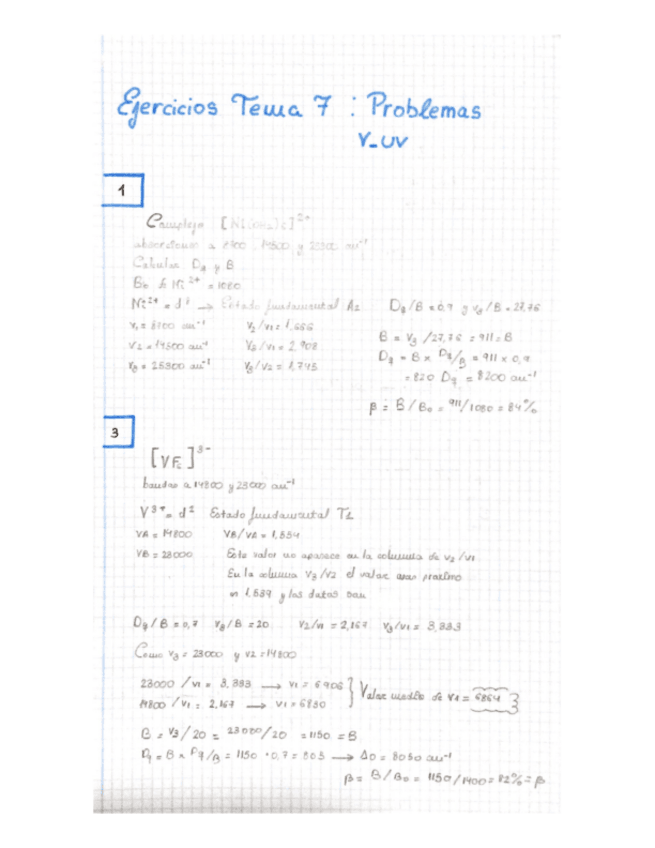 Ejercicios Tema 7 : Problemas
V-UV
1
Complejo [Ni(NH3)6]2+
absorciones a 14500 y cm-1
Calcular Dq y B
B0 Ni2+ = 1080
Ni2+ = d8 → Estado fundamental A2
V2/V1 = 1,666
V2 = 14500 cm-1 V3/V1 = 2,908
V3 = 25300 cm-1 V3/V2 = 1,745
Dq/B = 0,9 y V3/B = 27,76
B = V3/27,76 = 911 = B
Dq = B x Dq/B = 911 x 0,9
= 820 Dq = 8200 cm-1
β = B/B0 = 911/1080 = 84%
3
[VF6]3-
bandas a 14800 y 23000 cm-1
V3+ = d2 Estado fundamental T1
VA = 14800 VB/VA = 1,554
VB = 23000 Este valor no aparece en la columna de V2/V1
En la columna V3/V2 el valor mas proximo
es y los datos son
Dq/B = 0,7 V3/B = 20 V2/V1 = 2,167 V3/V1 = 3,333
Como V3 = 23000 y V2 = 14800
23000/V1 = 3,333 → V1 = 6906
14800/V1 = 2,167 → V1 = 6830
Valor medio de V1 = 6864
B = V3/20 = 23000/20 = 1150 = B
Dq = B x Dq/B = 1150 · 0,7 = 805 → Δo = 8050 cm-1
β = B/B0 = 1150/1400 = 82% = β